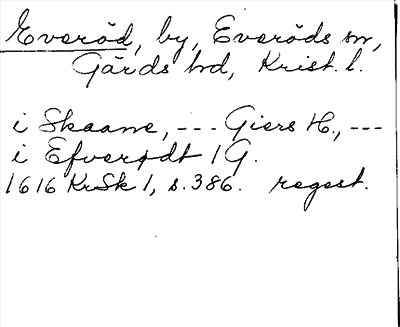 Everöd, by, Everöds sn,
Gärds hd, Krist. l.
i Skaane, --- Giers H., ---
i Efverødt 1 G.
1616 KrSk 1, s. 386. regest.